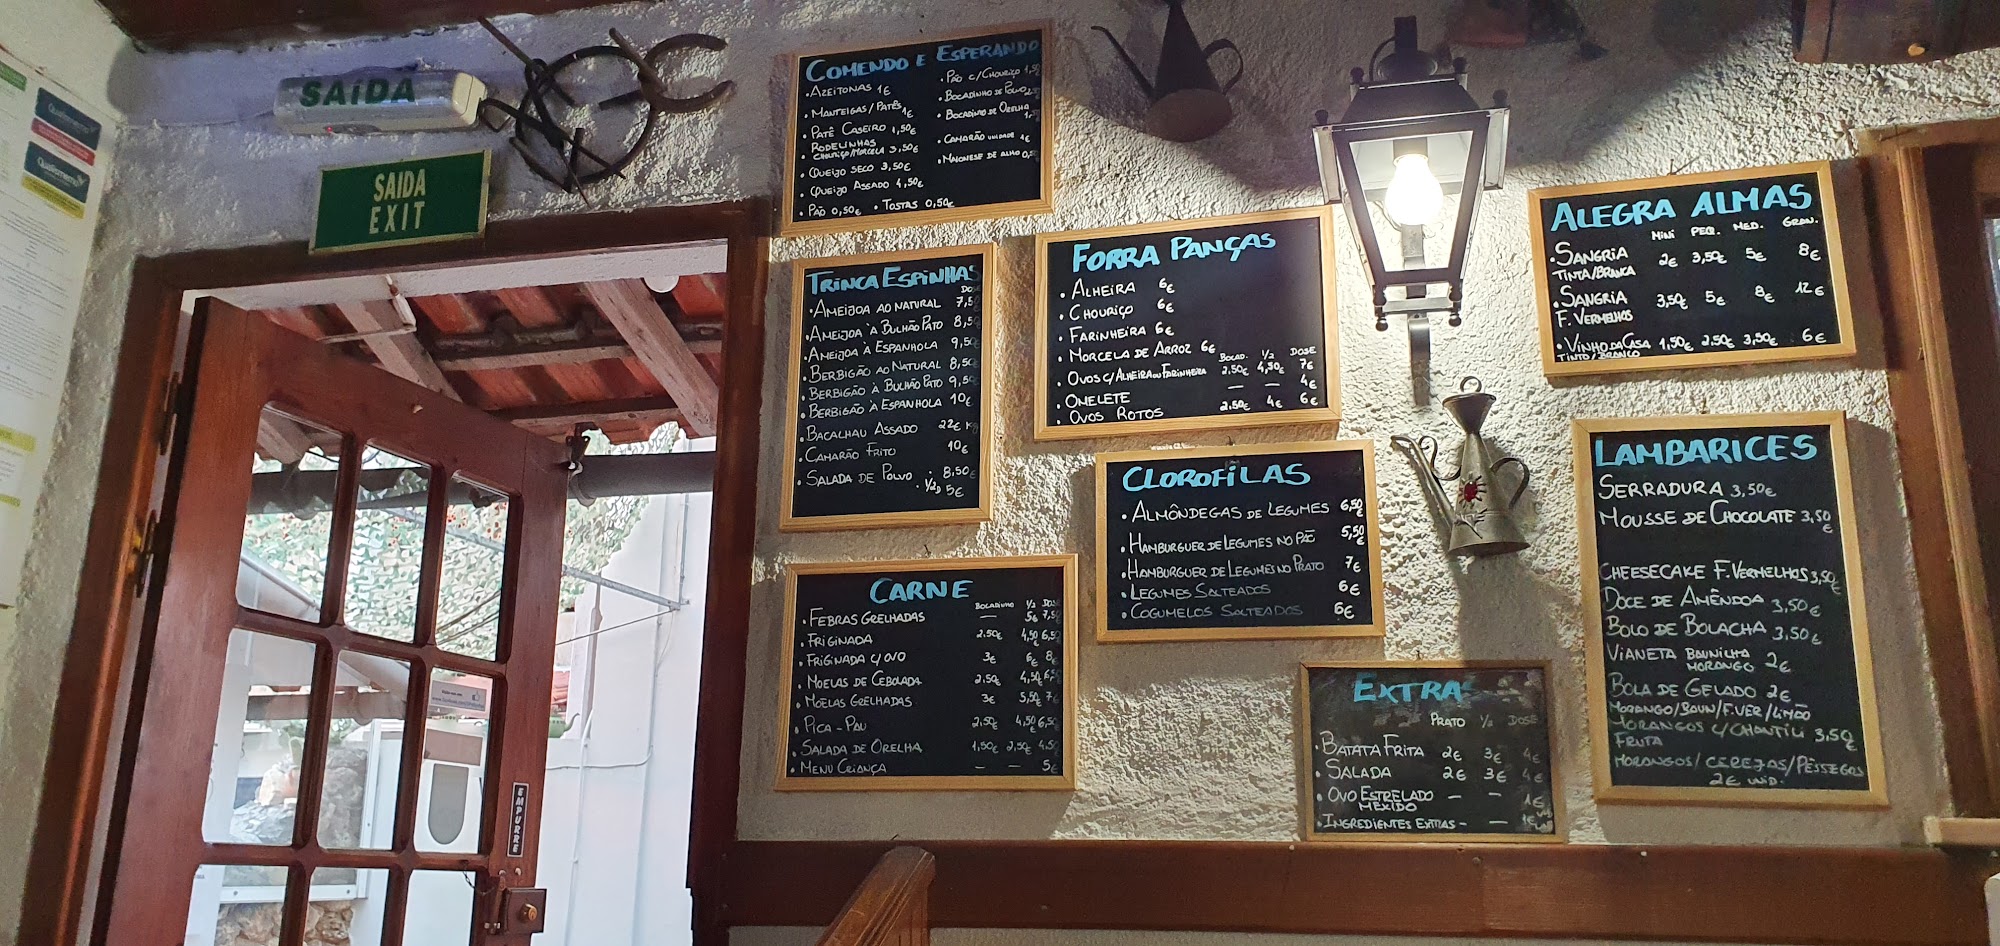 SAÍDA
SAIDA
EXIT
Qualfarmerno
EMPURRE
COMENDO E ESPERANDO
• AZEITONAS 1€
• MANTEIGAS/PATÊS 1€
• PATÊ CASEIRO 1,50€
• RODELINHAS
CHOURIÇO/MORCELA 3,50€
• QUEIJO SECO 3,50€
• QUEIJO ASSADO 4,50€
• PÃO 0,50€ • TOSTAS 0,50€
• PÃO C/CHOURIÇO 1,50€
• BOCADINHO DE POLVO
• BOCADINHO DE ORELHA
• CAMARÃO UNIDADE 1€
• MAIONESE DE ALHO
TRINCA ESPINHAS
DOSE
• AMEIJOA AO NATURAL 7,50
• AMEIJOA À BULHÃO PATO 8,50
• AMEIJOA À ESPANHOLA 9,50
• BERBIGÃO AO NATURAL 8,50
• BERBIGÃO À BULHÃO PATO 9,50
• BERBIGÃO À ESPANHOLA 10€
• BACALHAU ASSADO 22€ KG
• CAMARÃO FRITO 10€
• SALADA DE POLVO • 8,50€
• 1/2D 5€
CARNE
BOCADINHO 1/2 DOSE
• FEBRAS GRELHADAS — 5€ 7,50
• FRIGINADA 2,50€ 4,50€ 6,50
• FRIGINADA C/OVO 3€ 6€ 8€
• MOELAS DE CEBOLADA 2,50€ 4,50€ 6,50
• MOELAS GRELHADAS 3€ 5,50€ 7€
• PICA-PAU 2,50€ 4,50€ 6,50€
• SALADA DE ORELHA 1,50€ 2,50€ 4,50
• MENU CRIANÇA — — 5€
FORRA PANÇAS
• ALHEIRA 6€
• CHOURIÇO 6€
• FARINHEIRA 6€
• MORCELA DE ARROZ 6€
BOCAD. 1/2 DOSE
• OVOS C/ALHEIRA OU FARINHEIRA 2,50€ 4,50€ 7€
• OMELETE — — 4€
• OVOS ROTOS 2,50€ 4€ 6€
CLOROFILAS
• ALMÔNDEGAS DE LEGUMES 6,50€
• HAMBURGUER DE LEGUMES NO PÃO 5,50€
• HAMBURGUER DE LEGUMES NO PRATO 7€
• LEGUMES SALTEADOS 6€
• COGUMELOS SALTEADOS 6€
EXTRA
PRATO 1/2 DOSE
• BATATA FRITA 2€ 3€ 4€
• SALADA 2€ 3€ 4€
• OVO ESTRELADO — — 1€
MEXIDO
• INGREDIENTES EXTRAS — — 1€
ALEGRA ALMAS
MINI PEQ. MED. GRAN.
• SANGRIA 2€ 3,50€ 5€ 8€
TINTA/BRANCA
• SANGRIA 3,50€ 5€ 8€ 12€
F. VERMELHOS
• VINHO DA CASA 1,50€ 2,50€ 3,50€ 6€
TINTO/BRANCO
LAMBARICES
SERRADURA 3,50€
MOUSSE DE CHOCOLATE 3,50€
CHEESECAKE F. VERMELHOS 3,50€
DOCE DE AMÊNDOA 3,50€
BOLO DE BOLACHA 3,50€
VIANETA BAUNILHA
MORANGO 2€
BOLA DE GELADO 2€
MORANGO/BAUN/F.VER/LIMÃO
MORANGOS C/CHANTILI 3,50€
FRUTA
MORANGOS/CEREJAS/PÊSSEGOS
2€ UND.